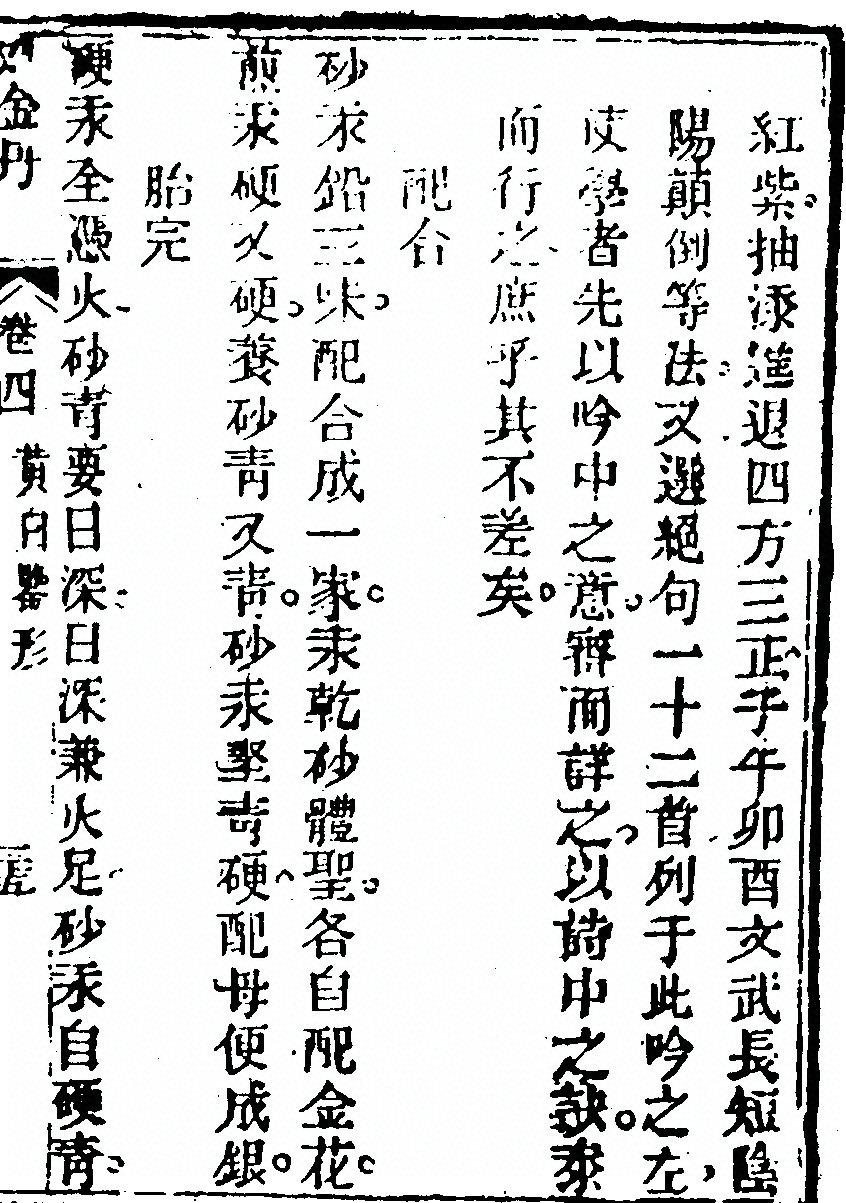 紅紫。抽添進退四方三正子午卯酉文武長短陰
陽顛倒等法。又選絕句一十二首列于此吟之左,
使學者先以吟中之意。審而詳之。以詩中之訣。參
而行之、庶乎其不差矣。
配合
砂汞鉛三味。配合成一家。汞乾砂體聖。各自配金花。
煎汞硬又硬。養砂青又青。砂汞堅青硬、配母便成銀。
胎完
硬汞全憑火、砂青要日深。日深兼火足、砂汞自硬青。
金丹
卷四
黃白鑒形